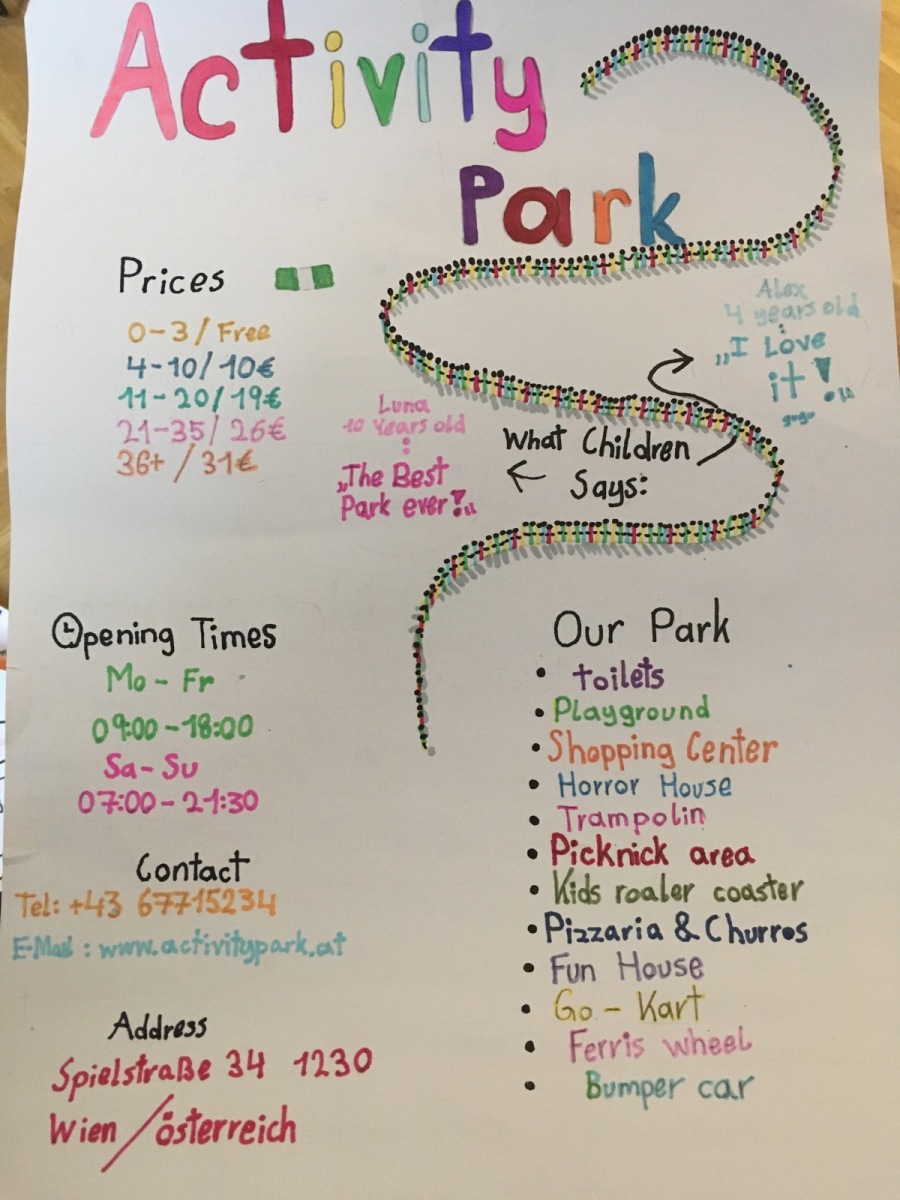 Activity
Park
Prices
0-3/Free
4-10/10€
11-20/19€
21-35/26€
36+ /31€
Alex
4 years old
:
„I Love
it!“
What Children
Says:
Luna
10 Years old
:
„The Best
Park ever!“
Opening Times
Mo - Fr
09:00 - 18:00
Sa - Su
07:00 - 21:30
Contact
Tel: +43 67715234
E-Mail : www.activitypark.at
Address
Spielstraße 34 1230
Wien / österreich
Our Park
• toilets
• Playground
• Shopping Center
• Horror House
• Trampolin
• Picknick area
• Kids roaler coaster
• Pizzaria & Churros
• Fun House
• Go - Kart
• Ferris wheel
• Bumper car